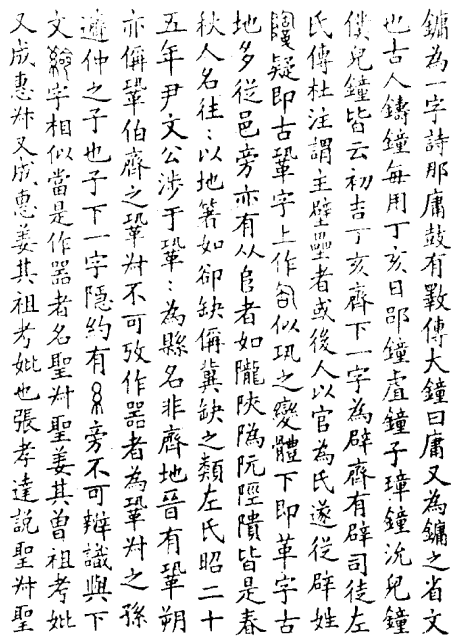 鏞為一字詩那庸鼓有斁傳大鐘曰庸又為鏞之省文
也古人鑄鐘每用丁亥日郘鐘虘鐘子璋鐘沇兒鐘
僕兒鐘皆云初吉丁亥齊下一字為辟齊有辟司徒左
氏傳杜注謂主壁壘者或後人以官為氏遂從辟姓
疑即古鞏字上作似巩之變體下即革字古
地多從邑旁亦有从𨸏者如隴陝隃阮陘隤皆是春
秋人名往︰以地箸如卻缺偁冀缺之類左氏昭二十
五年尹文公涉于鞏︰為縣名非齊地晉有鞏朔
亦偁鞏伯齊之鞏尗不可攷作器者為鞏尗之孫
遵仲之子也子下一字隱約有旁不可辨識與下
文字相似當是作器者名聖尗聖姜其曾祖考妣
又成惠尗又成惠姜其祖考妣也張孝達說聖尗聖